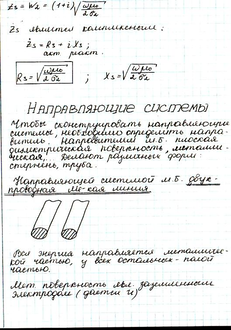 Zs = W₂ = (1+i)√(ωμ₀/2σ₂)
Zs является комплексным:
Zs = Rs + i Xs ;
акт. реакт.
Rs = √(ωμ₀/2σ₂) ; Xs = √(ωμ₀/2σ₂)
НАПРАВЛЯЮЩИЕ СИСТЕМЫ
Чтобы сконструировать направляющие
системы, необходимо определить напра-
витель. Направителем м.б. плоская
диэлектрическая поверхность, металли-
ческая, Делают различных форм:
стержень, труба.
Направляющей системой м.б. двух-
проводная Ме-кая линия.
Вся энергия направляется металличес-
кой частью, у всех остальных-
частью.
Мет. поверхность явл. заземленным
электродом (